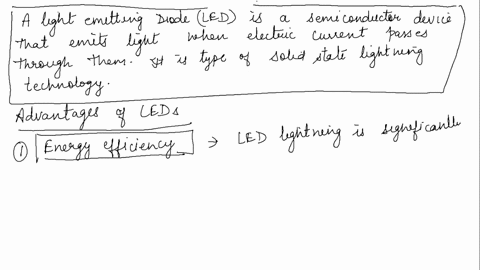 A light emitting Diode (LED) is a semiconductor device
that emits light when electric current passes
through them. It is type of solid state lightning
technology.
Advantages of LEDs
① Energy efficiency → LED lightning is significantly